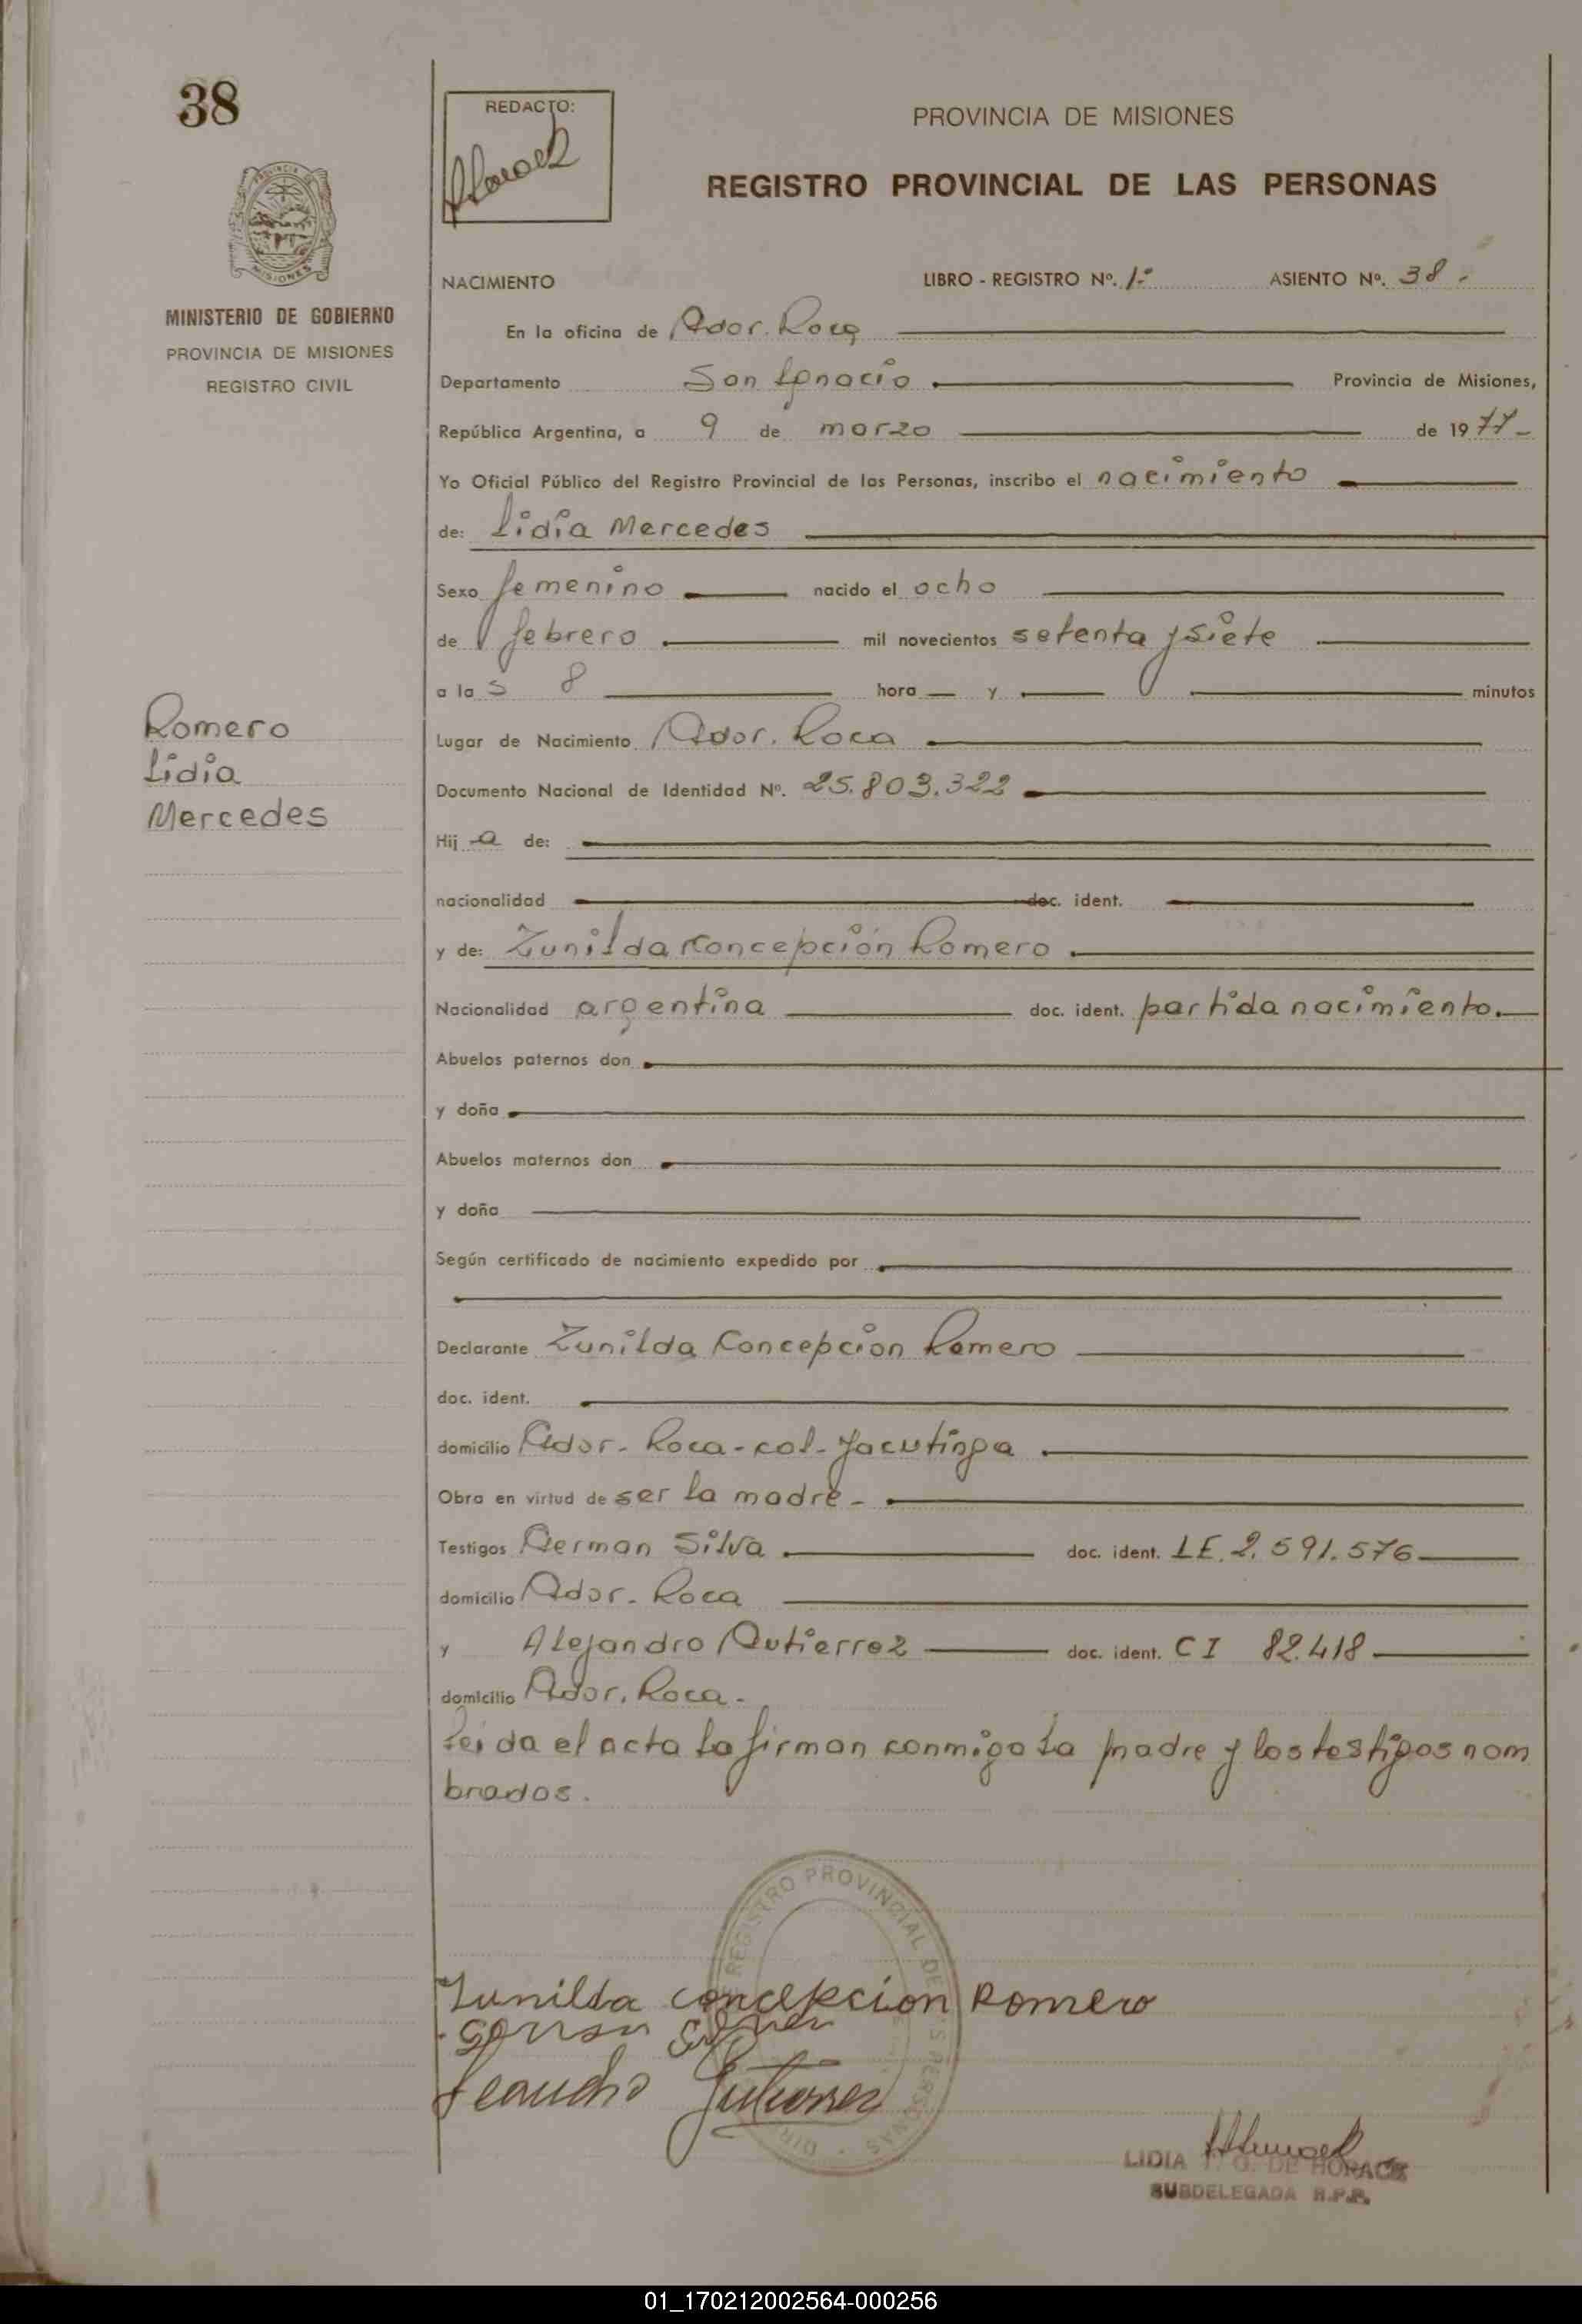 38
REDACTO:
PROVINCIA DE MISIONES
REGISTRO PROVINCIAL DE LAS PERSONAS
PROVINCIA DE MISIONES
MINISTERIO DE GOBIERNO
PROVINCIA DE MISIONES
REGISTRO CIVIL
NACIMIENTO LIBRO - REGISTRO Nº. 1º ASIENTO Nº. 38.
En la oficina de Gdor. Roca
Departamento San Ignacio Provincia de Misiones,
República Argentina, a 9 de marzo de 1977
Yo Oficial Público del Registro Provincial de las Personas, inscribo el nacimiento
de: Lidia Mercedes
Sexo femenino nacido el ocho
de febrero mil novecientos setenta y siete
a las 8 hora y minutos
Romero
Lidia
Mercedes
Lugar de Nacimiento Gdor. Roca
Documento Nacional de Identidad Nº. 25.803.322
Hija de:
nacionalidad doc. ident.
y de: Zunilda Concepción Romero
Nacionalidad argentina doc. ident. partida nacimiento.
Abuelos paternos don
y doña
Abuelos maternos don
y doña
Según certificado de nacimiento expedido por
Declarante Zunilda Concepcion Romero
doc. ident.
domicilio Gdor. Roca - col. Yacutinga
Obra en virtud de ser la madre -
Testigos German Silva doc. ident. LE. 2.591.576
domicilio Gdor. Roca
y Alejandro Gutierrez doc. ident. CI 82.418
domicilio Gdor. Roca.
Leida el acta la firman conmigo la madre y los testigos nom
brados.
REGISTRO PROVINCIAL DE LAS PERSONAS
Zunilda concepcion Romero
Gutierrez
LIDIA T. G. DE HORACK
SUBDELEGADA R.P.P.
01_170212002564-000256